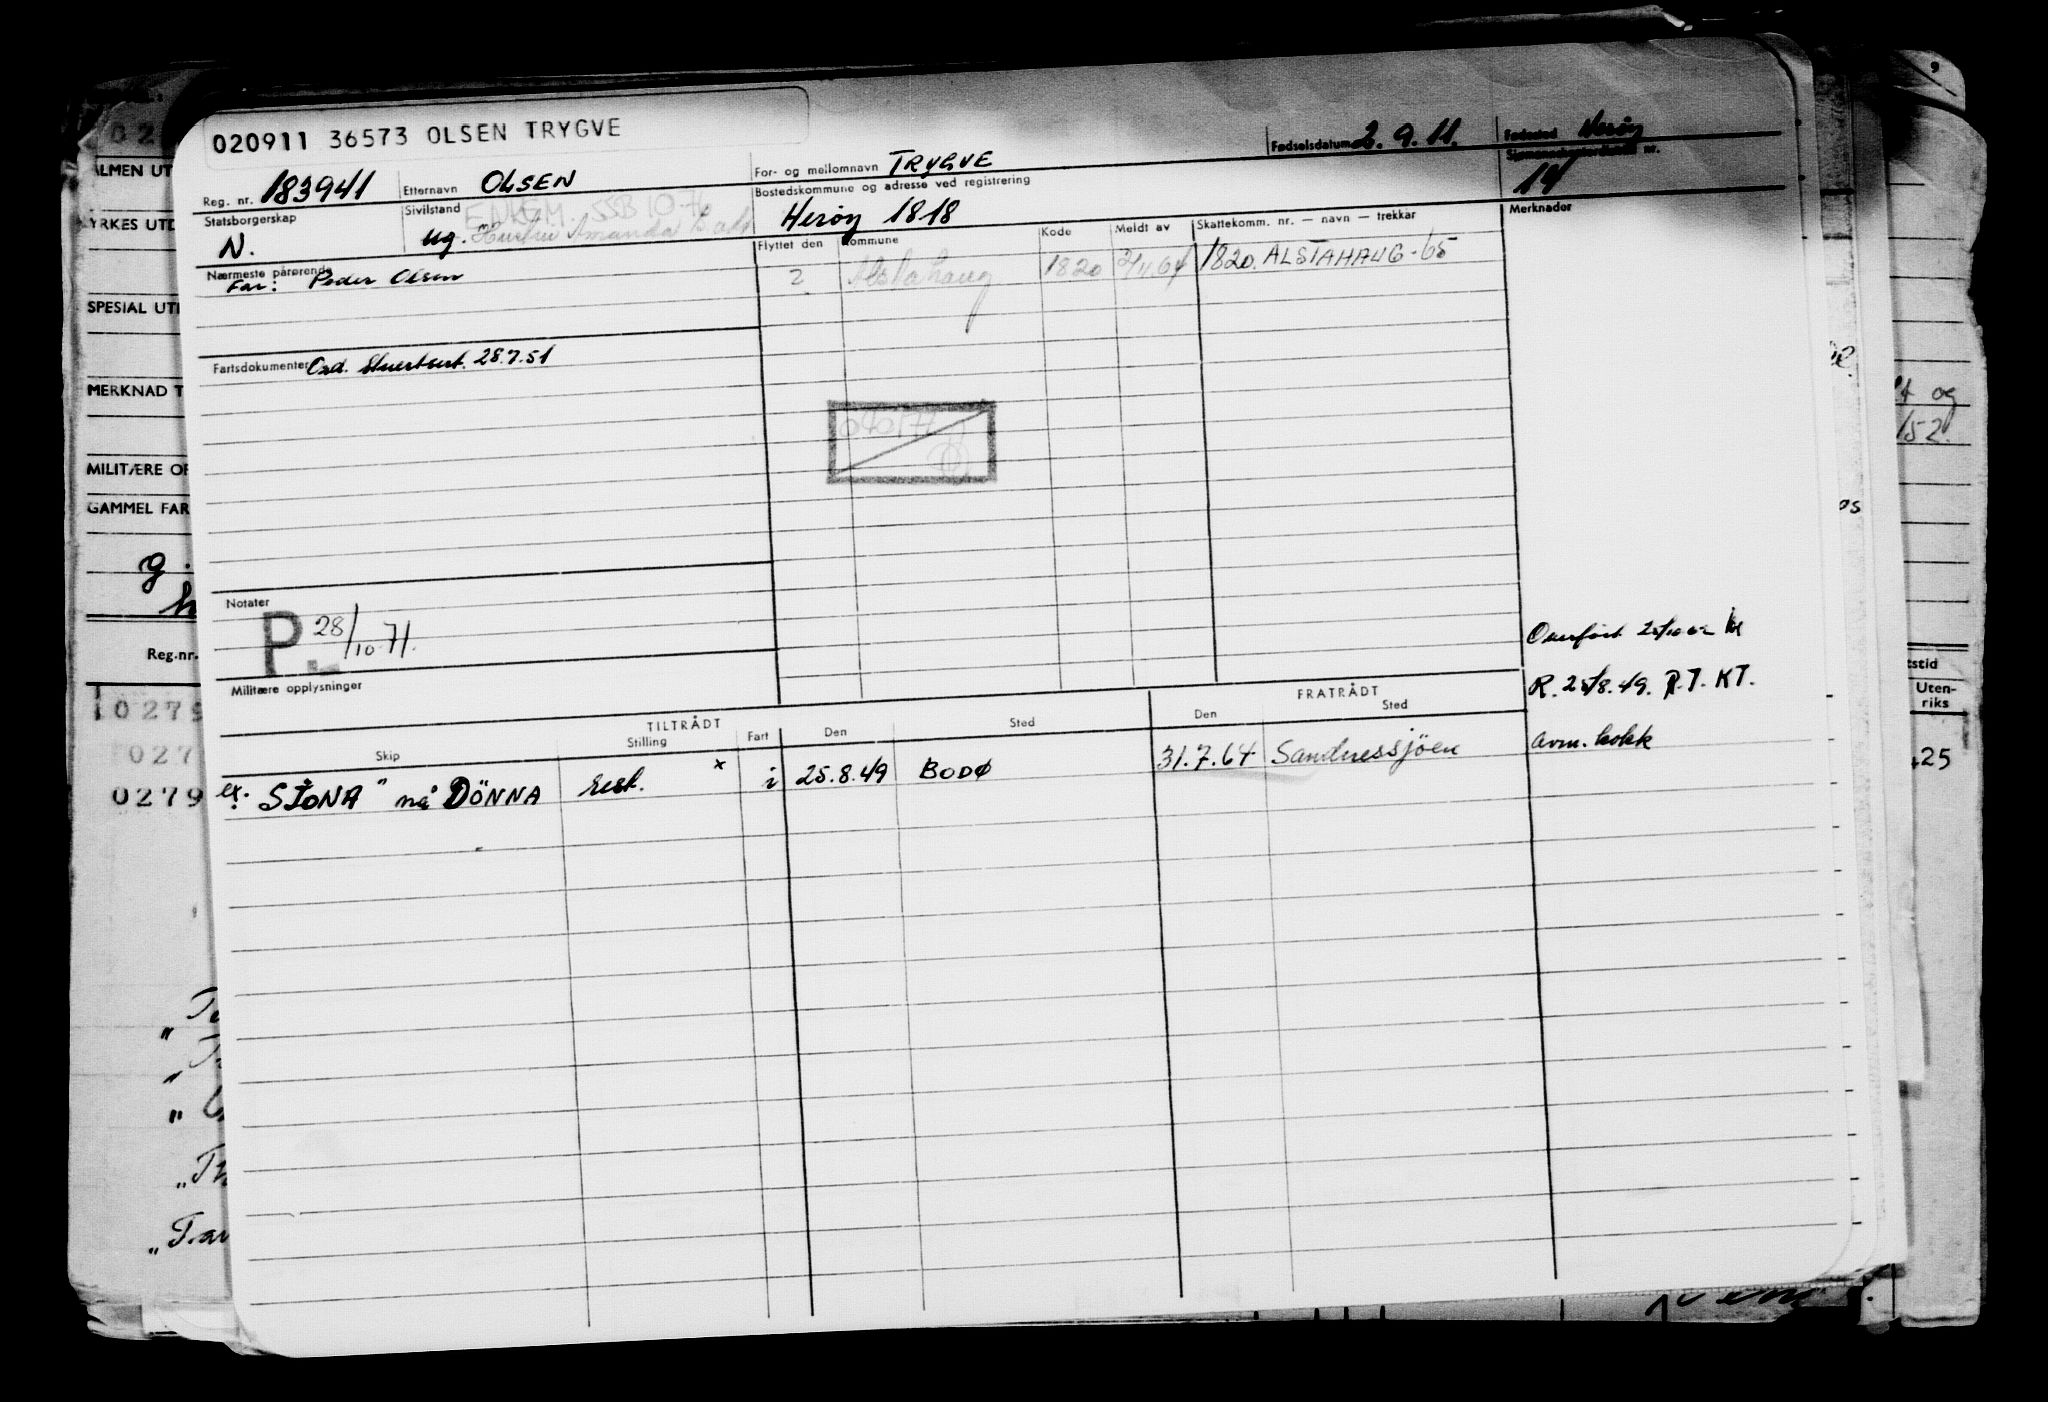 020911 36573 OLSEN TRYGVE
Fødselsdatum 2.9.11. Fødested Herøy
Reg. nr. 183941 Etternavn OLSEN For- og mellomnavn TRYGVE
14
Statsborgerskap N. Sivilstand ug. Bostedskommune og adresse ved registrering Herøy 1818
ENKEM. SSB 10-76
Hustru Amanda
Merknader
Nærmeste pårørende Far: Peder Olsen
Flyttet den Kommune Kode Meldt av Skattekomm. nr. — navn — trekkår
2 Alstahaug 1820 2/11 64 1820 ALSTAHAUG - 65
Fartsdokumenter 28.7.51
040177
Notater
P 28/10-71.
Militære opplysninger
Overført
R. 25/8.49. P.T. KT.
TILTRÅDT FRATRÅDT
Skip Stilling Fart Den Sted Den Sted
ex. "SJONA" nå DÖNNA rest. x i 25.8.49 BODØ 31.7.64 Sandnessjöen avm. kokk
ALMEN UT
YRKES UTD
SPESIAL UT
MERKNAD T
MILITÆRE OP
GAMMEL FAR
g.
Reg.nr.
0279
027
0279
og
/52.
os
tstid
Uten-
riks
425